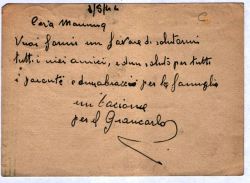 Cara Mamma
Vuoi farmi un favore di salutarmi
tutti i miei amici, e dun saluto per tutti
i parenti e dun abraccio per la famiglia
un bacione
per el Giancarlo